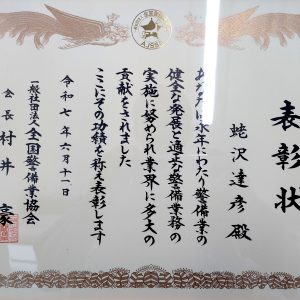 表彰状
蛯沢達彦殿
あなたは永年にわたり警備業の
健全な発展と適正な警備業務の
実施に努められ業界に多大の
貢献をされました
ここにその功績を称え表彰します
令和七年六月十一日
一般社団法人全国警備業協会
会長村井豪